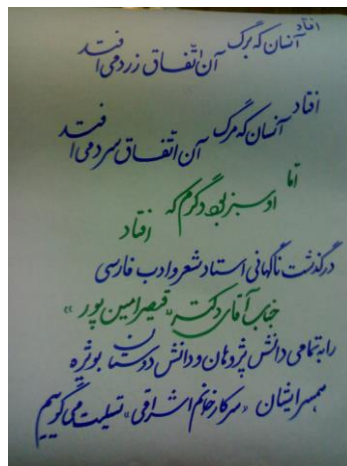 افتاد
آنسان که برگ
آن اتّفاق زرد می‌افتد
افتاد
آنسان که مرگ
آن اتفاق سرد می‌افتد
اما
او سبز بود و گرم که
افتاد
درگذشت ناگهانی استاد شعر و ادب فارسی
جناب آقای دکتر «قیصر امین پور»
را به تمامی دانش پژوهان و دانش دوستان بویژه
همسر ایشان «سرکار خانم اشراقی» تسلیت می‌گوییم